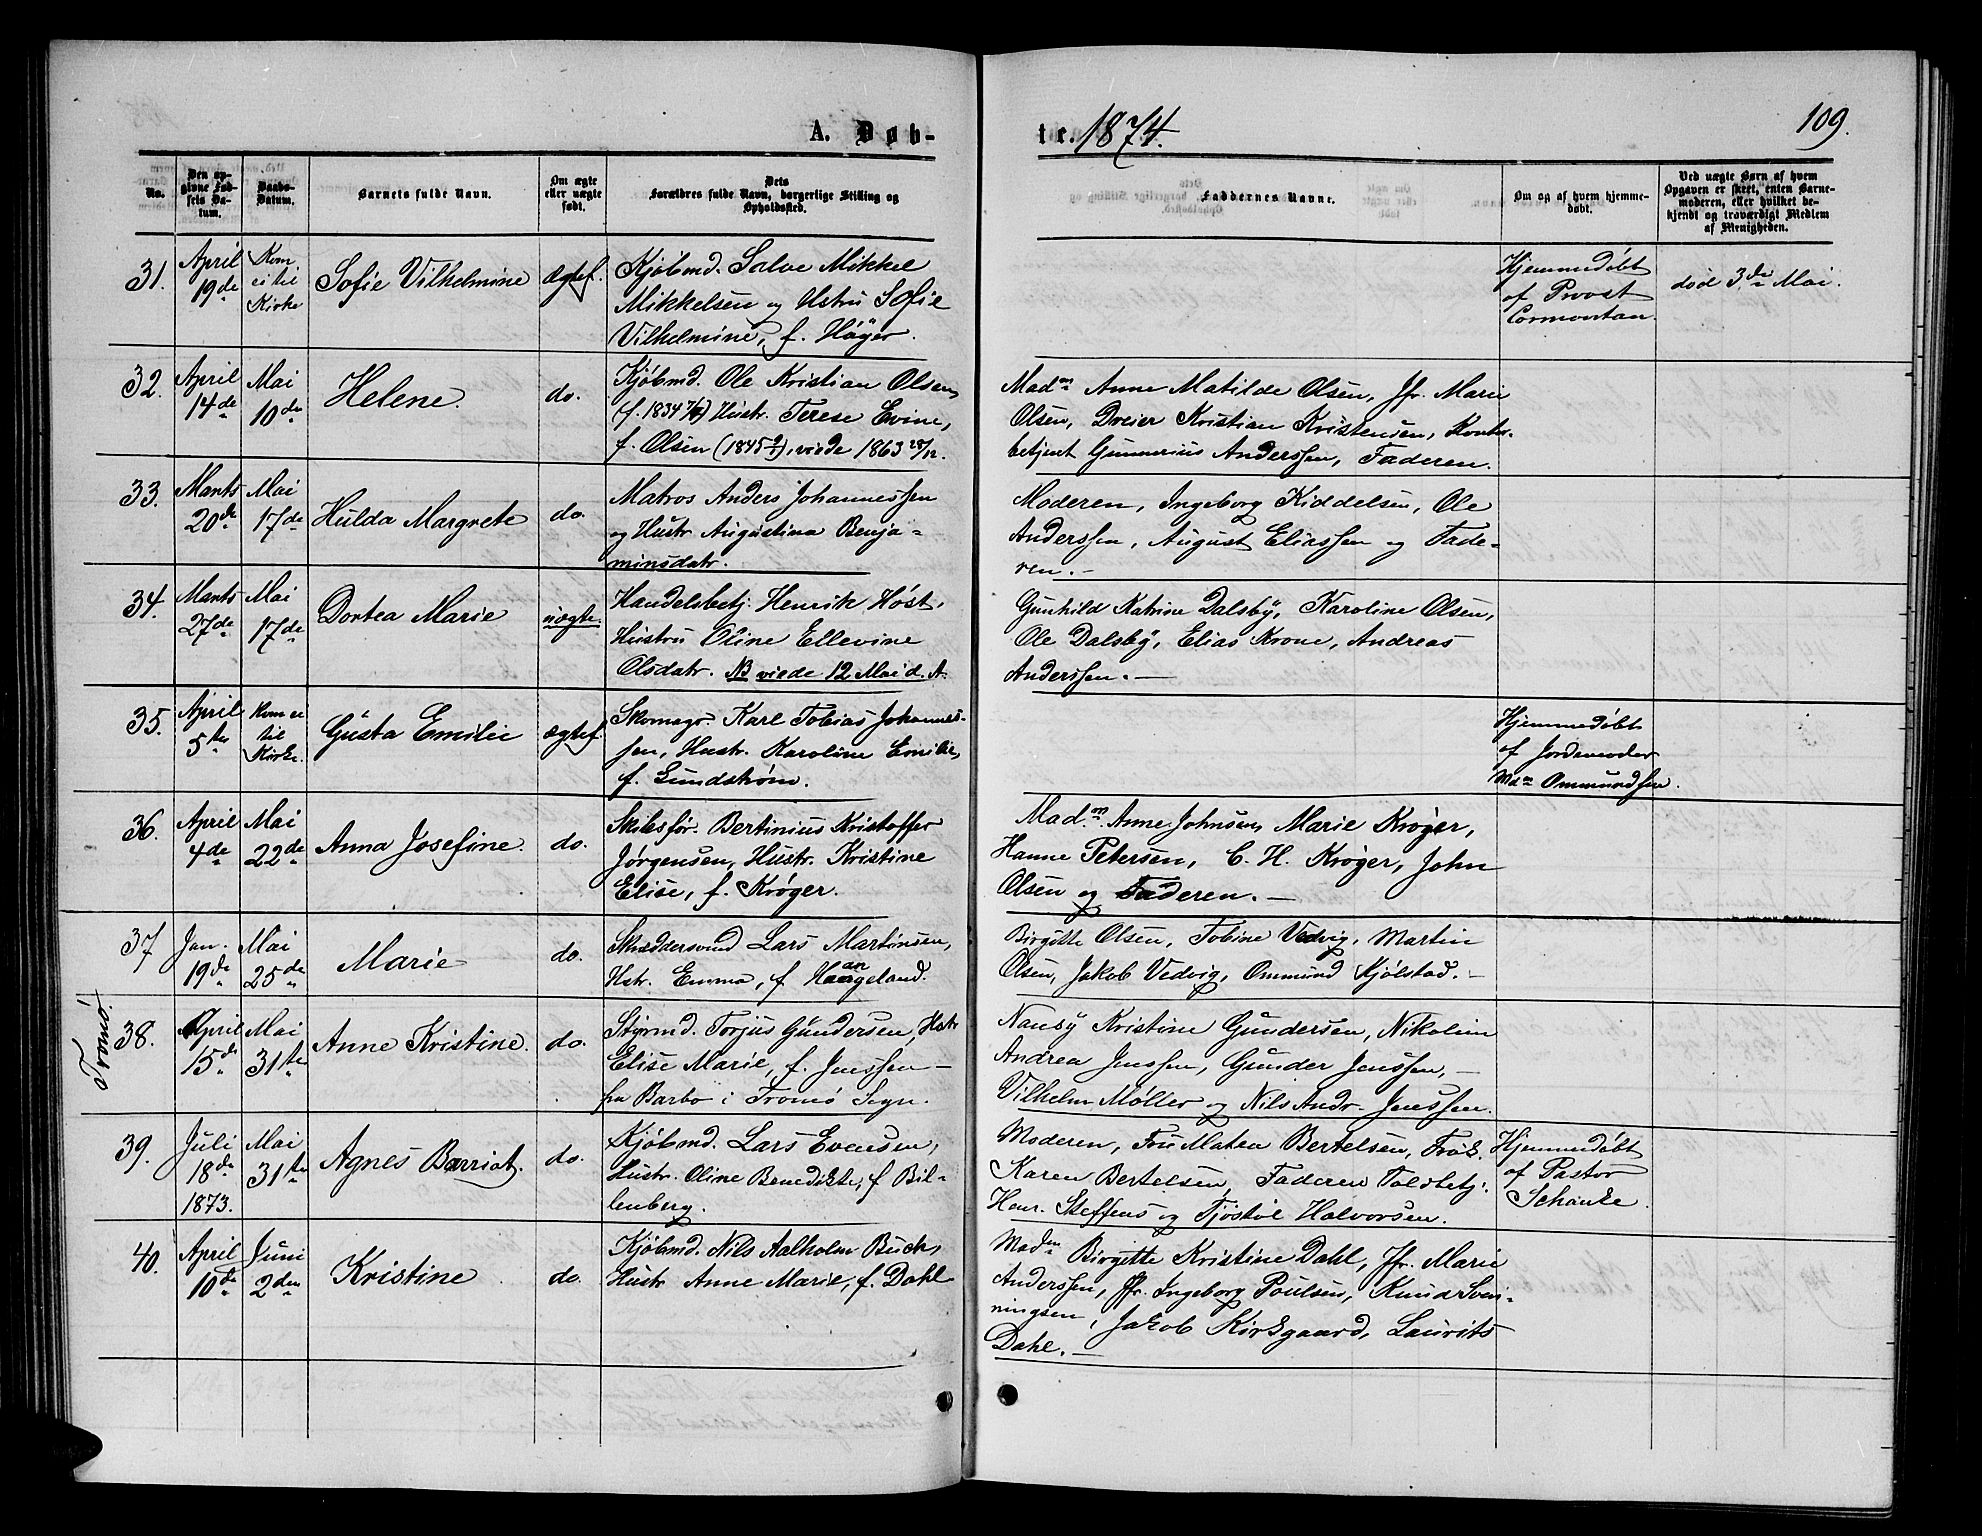 A. Døb-
te. 1874.
109.
No.
Den op-
givne Fød-
sels Da-
tum.
Daabs-
Datum.
Barnets fulde Navn.
Om ægte
eller uægte
født.
Dets
Forældres fulde Navn, borgerlige Stilling og
Opholdssted.
Faddernes Navne.
Om og af hvem hjemme-
døbt.
Ved uægte Børn af hvem
Opgaven er skeet, enten Barne-
moderen, eller hvilket be-
kjendt og troværdigt Medlem
af Menigheden.
31.
April
19de
Kom
ei til
Kirke
Sofie Vilhelmine
ægtef.
Kjøbmd. Salve Mikkel
Mikkelsen og Hstru Sofie
Vilhelmine, f. Høyer.
Hjemmedøbt
af Provst
Cormontan.
død 3die Mai.
32.
April
14de
Mai
10de
Helene.
do.
Kjøbmd. Ole Kristian Olsen,
(f. 1834) Hustr. Terese Evine,
f. Olsen (1845), viede 1863 28/12.
Madm Anne Matilde Olsen, Jfr. Marie
Olsen, Dreier Kristian Kristensen, Kontr.
betjent Gunnerius Anderssen, Faderen.
33.
Marts
20de
Mai
17de
Hulda Margrete
do.
Matros Anders Johannessen
og Hustr Augustina Benja-
minsdatr.
Moderen, Ingeborg Kiddelsen, Ole
Anderssen, August Eliassen og Fade-
ren.-
34.
Marts
27de
Mai
17de
Dortea Marie
uægte.
Handelsbetj. Henrik Høst,
Hustru Oline Ellevine
Olsdatr. NB viede 12 Mai d. A.
Gunhild Katrine Dalsby, Karoline Olsen,
Ole Dalsby, Elias Krone, Andreas
Anderssen.-
35.
April
5te
Kom ei
til
Kirke.
Gusta Emilie
ægtef.
Skomagr. Karl Tobias Johannes-
sen, Hustr. Karoline Emilie,
f. Gundstrøm.
Hjemmedøbt
af Jordemoder
Mdm Ommundsen.
36.
April
4de
Mai
22de
Anna Josefine.
do.
Skibsfør. Bertinius Kristoffer
Jørgensen, Hustr. Kristine
Elise, f. Krøger.
Madm. Anne Johnsen, Marie Krøger,
Hanne Petersen, C. H. Krøger, John
Olsen og Faderen.-
37
Jan.
19de
Mai
25de
Marie
do.
Skræddersvend Lars Martinsen,
Hstr. Emma, f. Haangeland.
Birgitte Olsen, Tobine Vedvig, Martin
Olsen, Jakob Vedvig, Ommund Kjølstad.-
Tromø.
38.
April
15de
Mai
31te
Anne Kristine.
do.
Styrmd. Torjus Gundersen, Hstr
Elise Marie, f. Jenssen-
fra Barbo i Tromø Sogn.
Nansy Kristine Gundersen, Nikolin
Andrea Jenssen, Gunder Jenssen,-
Vilhelm Møller og Nils Andr. Jenssen.
39.
Juli
18de
1873.
Mai
31te
Agnes Barriot.
do.
Kjøbmd. Lars Evensen,
Hustr. Oline Benedikte, f Bil-
lenberg.
Moderen, Fru Matea Bertelsen, Frøk.
Karen Bertelsen, Faderen Toldbetj.
Henr. Steffens og Tjøstol Halvorsen.
Hjemmedøbt
af Pastor
Schanke
40.
April
10de
Juni
2den
Kristine
do.
Kjøbmd. Nils Aalholm Buch,
Hustr Anne Marie, f. Dahl
Madm Birgitte Kristine Dahl, Jfr. Marie
Anderssen, Jfr. Ingeborg Poulsen, Knud Sven-
ningsen, Jakob Kirkgaard, Laurits
Dahl.-